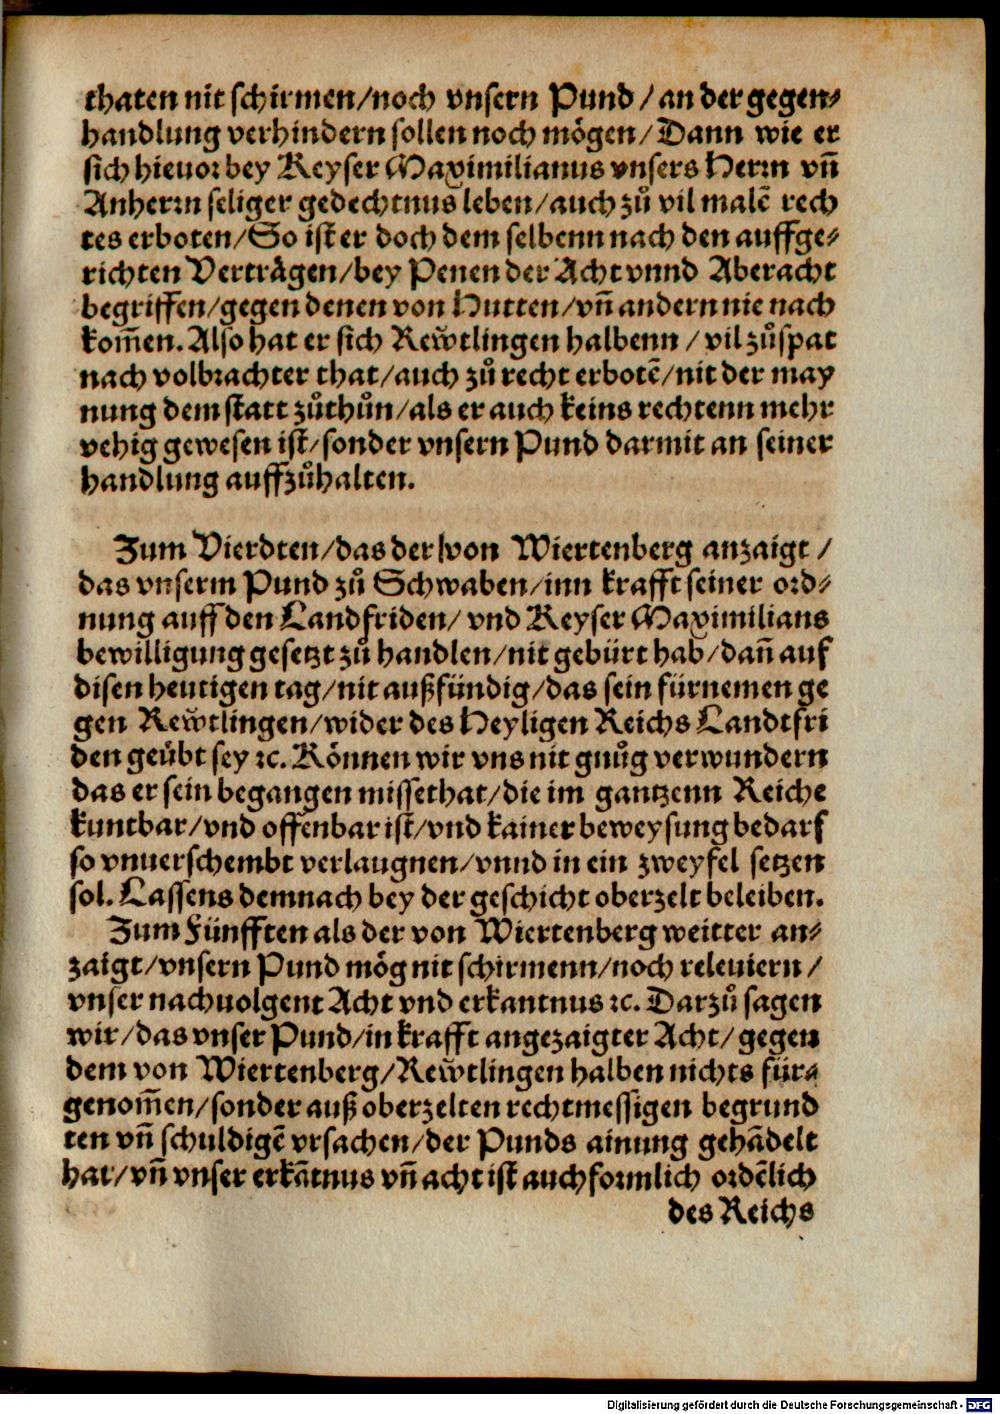 thaten nit schirmen/noch vnsern Pund/an der gegen⸗
handlung verhindern sollen noch mögen/Dann wie er
sich hieuor bey Keyser Maximilianus vnsers Herrn vñ
Anherrn seliger gedechtnus leben/auch zů vil malē rech
tes erboten/So ist er doch dem selbenn nach den auffge⸗
richten Verträgen/bey Penen der Acht vnnd Aberacht
begriffen/gegen denen von Hutten/vñ andern nie nach
kom̃en. Also hat er sich Rewͤtlingen halbenn/vil zůspat
nach volbrachter that/auch zů recht erbotē/nit der may
nung dem statt zůthůn/als er auch keins rechtenn mehr
vehig gewesen ist/sonder vnsern Pund darmit an seiner
handlung auffzůhalten.
Zum Vierdten/das der von Wiertenberg anzaigt/
das vnserm Pund zů Schwaben/inn krafft seiner ord⸗
nung auff den Landfriden/vnd Keyser Maximilians
bewilligung gesetzt zů handlen/nit gebürt hab/dañ auf
disen heutigen tag/nit außfündig/das sein fürnemen ge
gen Rewͤtlingen/wider des Heyligen Reichs Landtfri
den geübt sey ꝛc. Können wir vns nit gnůg verwundern
das er sein begangen missethat/die im gantzenn Reiche
kuntbar/vnd offenbar ist/vnd kainer beweysung bedarf
so vnuerschembt verlaugnen/vnnd in ein zweyfel setzen
sol. Lassens demnach bey der geschicht oberzelt beleiben.
Zum Fünfften als der von Wiertenberg weitter an⸗
zaigt/vnsern Pund mög nit schirmenn/noch releuiern/
vnser nachuolgent Acht vnd erkantnus ꝛc. Darzů sagen
wir/das vnser Pund/in krafft angezaigter Acht/gegen
dem von Wiertenberg/Rewͤtlingen halben nichts für⸗
genom̃en/sonder auß oberzelten rechtmessigen begrund
ten vñ schuldigē vrsachen/der Punds ainung gehādelt
hat/vñ vnser erkātnus vñ acht ist auch formlich ordēlich
des Reichs
Digitalisierung gefördert durch die Deutsche Forschungsgemeinschaft - DFG